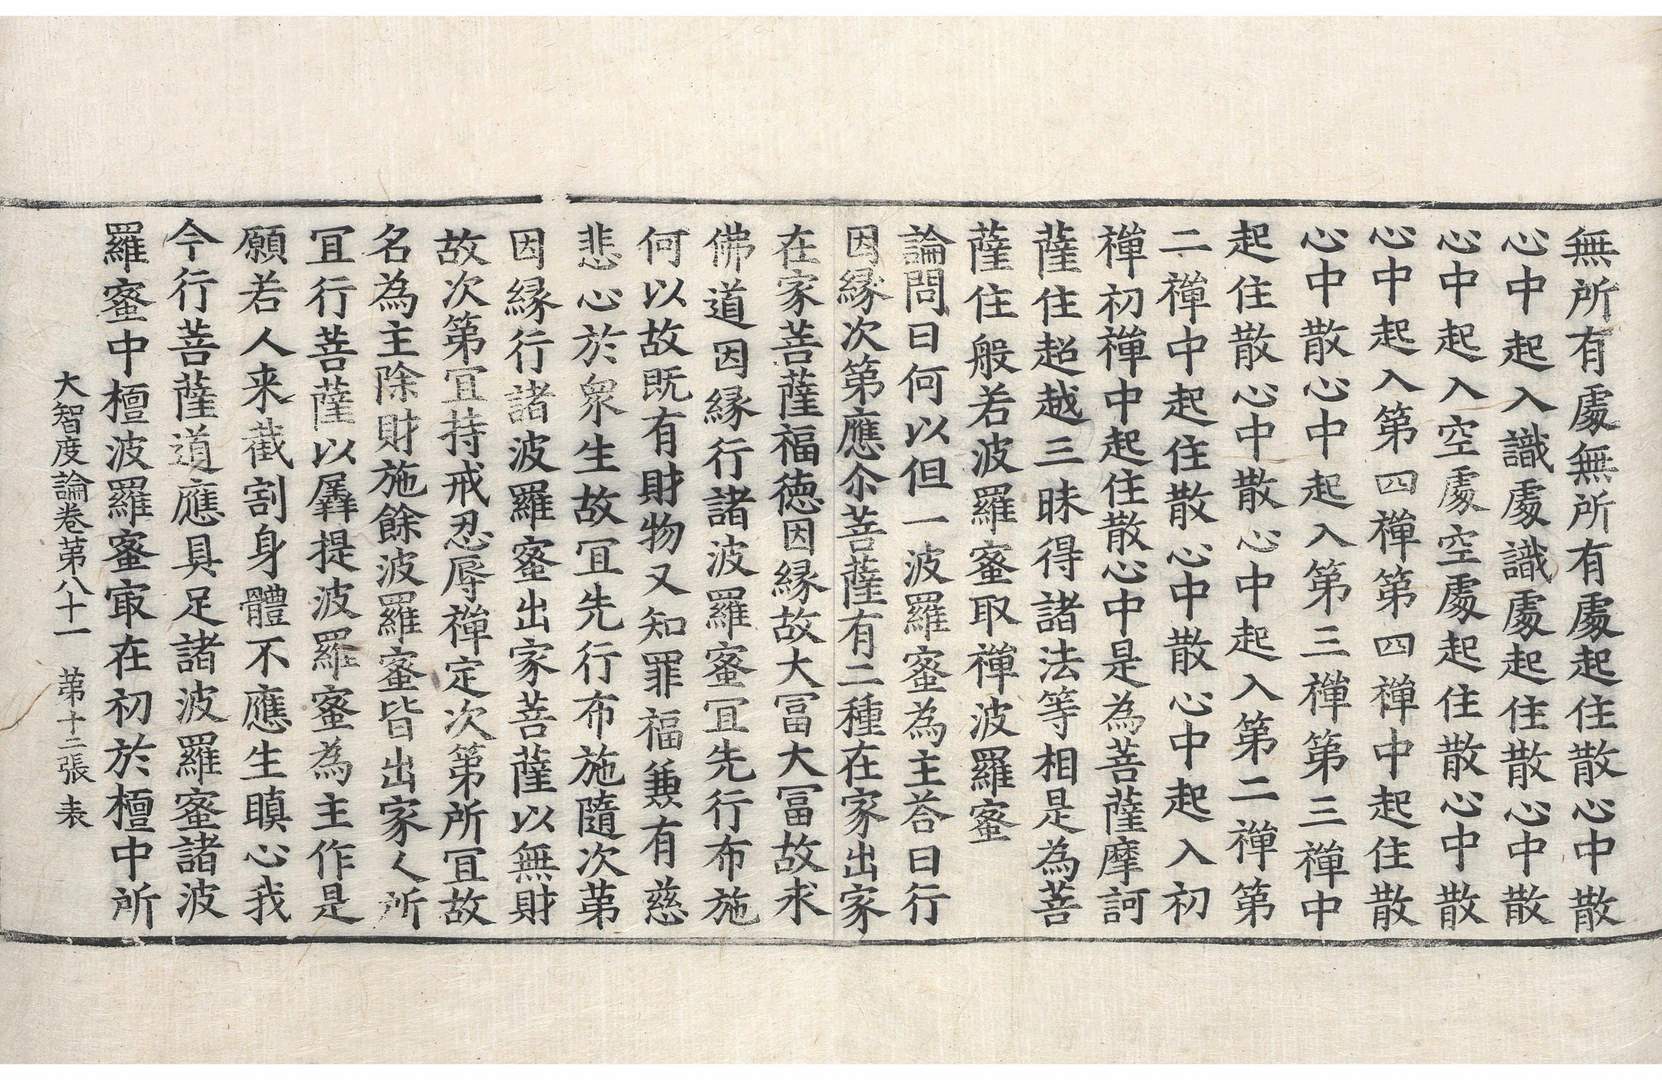 無所有處無所有處起住散心中散
心中起入識處識處起住散心中散
心中起入空處空處起住散心中散
心中起入第四禪第四禪中起住散
心中散心中起入第三禪第三禪中
起住散心中散心中起入第二禪第
二禪中起住散心中散心中起入初
禪初禪中起住散心中是為菩薩摩訶
薩住超越三昧得諸法等相是為菩
薩住般若波羅蜜取禪波羅蜜
論問曰何以但一波羅蜜為主荅曰行
因縁次第應尒菩薩有二種在家出家
在家菩薩福德因縁故大冨大冨故求
佛道因縁行諸波羅蜜冝先行布施
何以故既有財物又知罪福兼有慈
悲心於衆生故冝先行布施隨次苐
因縁行諸波羅蜜出家菩薩以無財
故次第冝持戒忍辱禪定次第所冝故
名為主除財施餘波羅蜜皆出家人所
冝行菩薩以羼提波羅蜜為主作是
願若人来截割身體不應生瞋心我
今行菩薩道應具足諸波羅蜜諸波
羅蜜中檀波羅蜜㝡在初於檀中所
大智度論卷第八十一　苐十二張　表